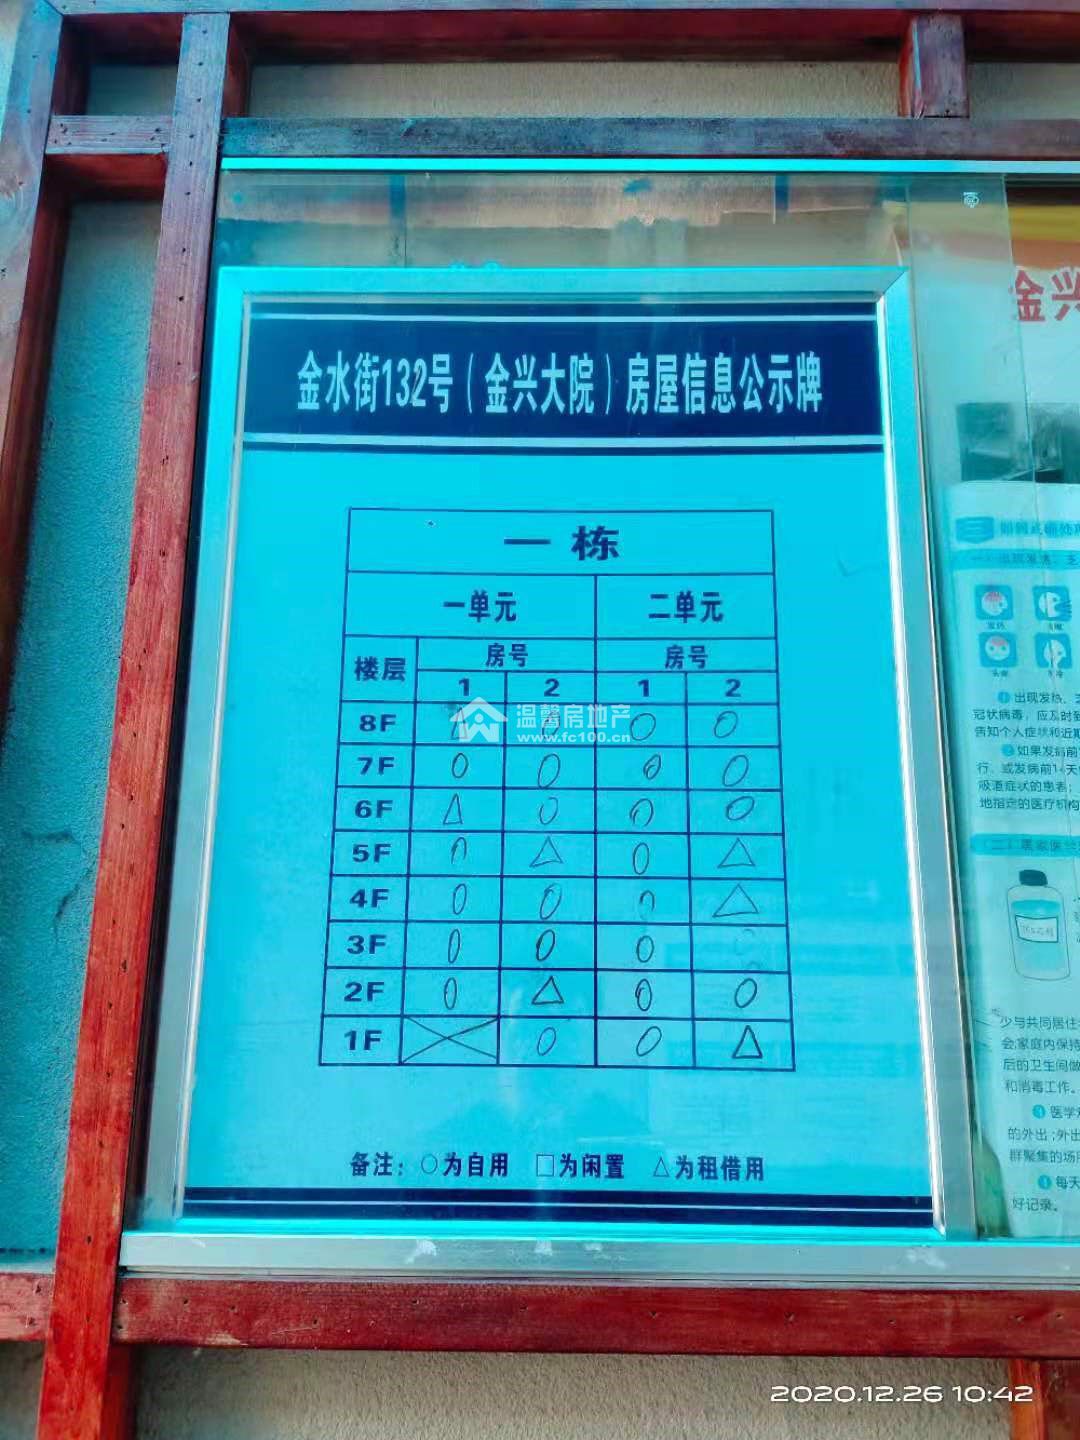 金水街132号（金兴大院）房屋信息公示牌
一栋
一单元 二单元
楼层 房号 房号
1 2 1 2
8F △ ○ ○ ○
7F ○ ○ ○ ○
6F △ ○ ○ ○
5F ○ △ ○ △
4F ○ ○ ○ △
3F ○ ○ ○
2F ○ △ ○ ○
1F ╳ ○ ○ △
备注：○为自用 □为闲置 △为租借用
温馨房地产
www.fc100.cn
金兴
发热
❶出现发热、
冠状病毒，应及时到
告知个人症状和近期
❷如果发病前
行、或发病前14天
吸道症状的患者；
地指定的医疗机构
少与共同居住
会;家庭内保持
后的卫生间做
和消毒工作。
❸医学
的外出;外出
群聚集的场所
❹每天
好记录。
2020.12.26 10:42